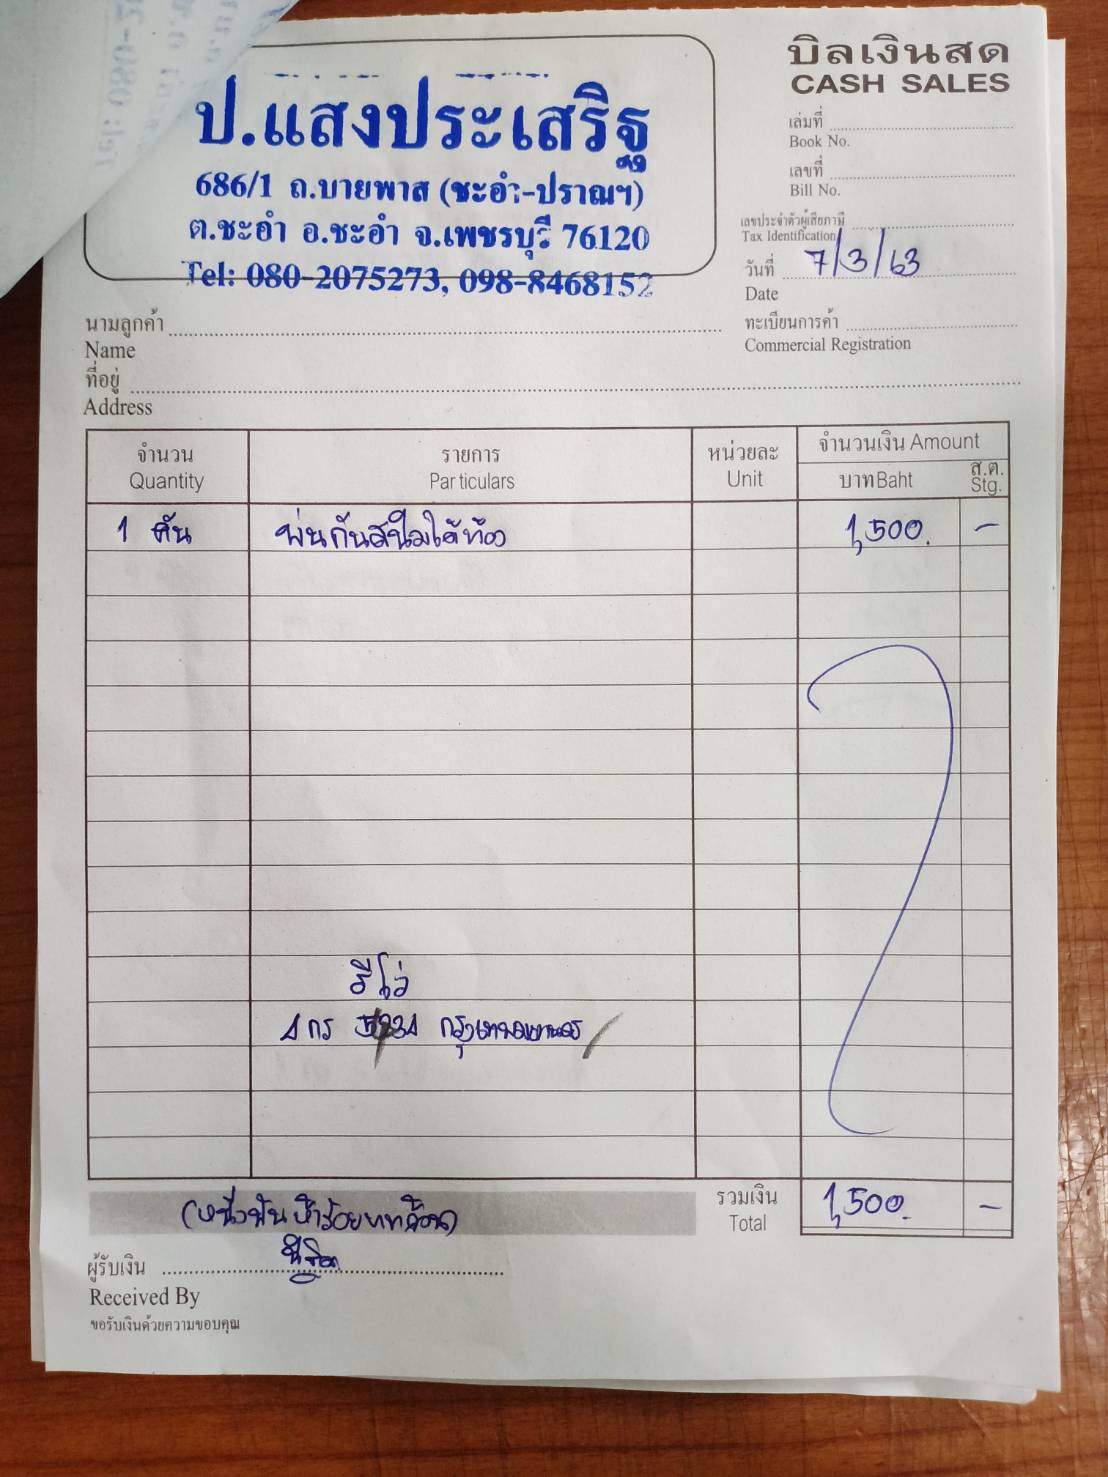 บิลเงินสด
CASH SALES
ป.แสงประเสริฐ
686/1 ถ.บายพาส (ชะอำ-ปราณฯ)
ต.ชะอำ อ.ชะอำ จ.เพชรบุรี 76120
Tel: 080-2075273, 098-8468152
เล่มที่
Book No.
เลขที่
Bill No.
เลขประจำตัวผู้เสียภาษี
Tax Identification
วันที่ 7/3/63
Date
ทะเบียนการค้า
Commercial Registration
นามลูกค้า
Name
ที่อยู่
Address
จำนวน รายการ หน่วยละ จำนวนเงิน Amount
Quantity Particulars Unit บาท Baht ส.ต. Stg.
1 คัน พ่นกันสนิมใต้ท้อง 1,500. -
รีโว่
1 กร กรุงเทพมหานคร
(หนึ่งพันห้าร้อยบาทถ้วน) รวมเงิน 1,500. -
Total
ผู้รับเงิน
Received By
ขอรับเงินด้วยความขอบคุณ